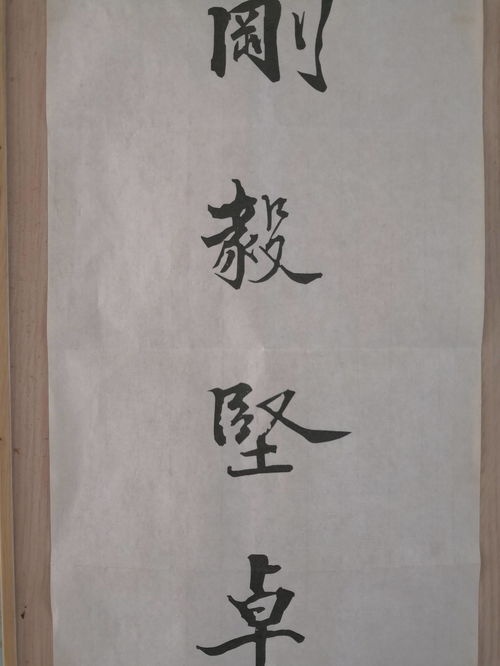 剛毅堅卓